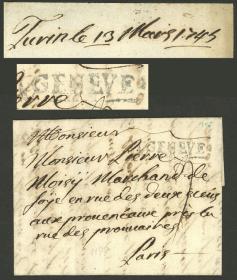 Turin le 13 Mars 1745
GENEVE
GENEVE
Monsieur
Monsieur Pierre
Moisy Marchand de
soye en rue des deux ecus
aux prouencaux pres la
rue des prouuaires
Paris